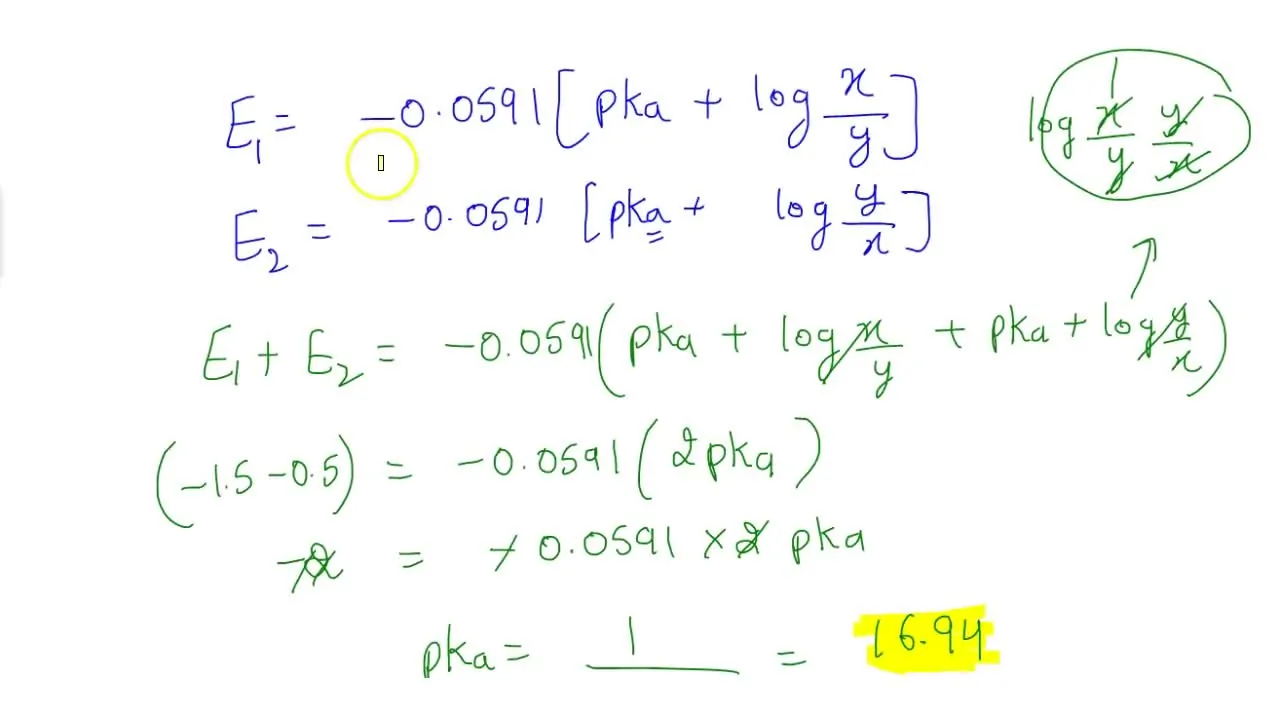 E₁ = -0.0591 [pka + log x/y]
log x/y y/x 1
E₂ = -0.0591 [pka + log y/x]
E₁ + E₂ = -0.0591 (pka + log x/y + pka + log y/x)
(-1.5 - 0.5) = -0.0591 (2pka)
-2 = -0.0591 × 2 pka
pka = 1/ = 16.94